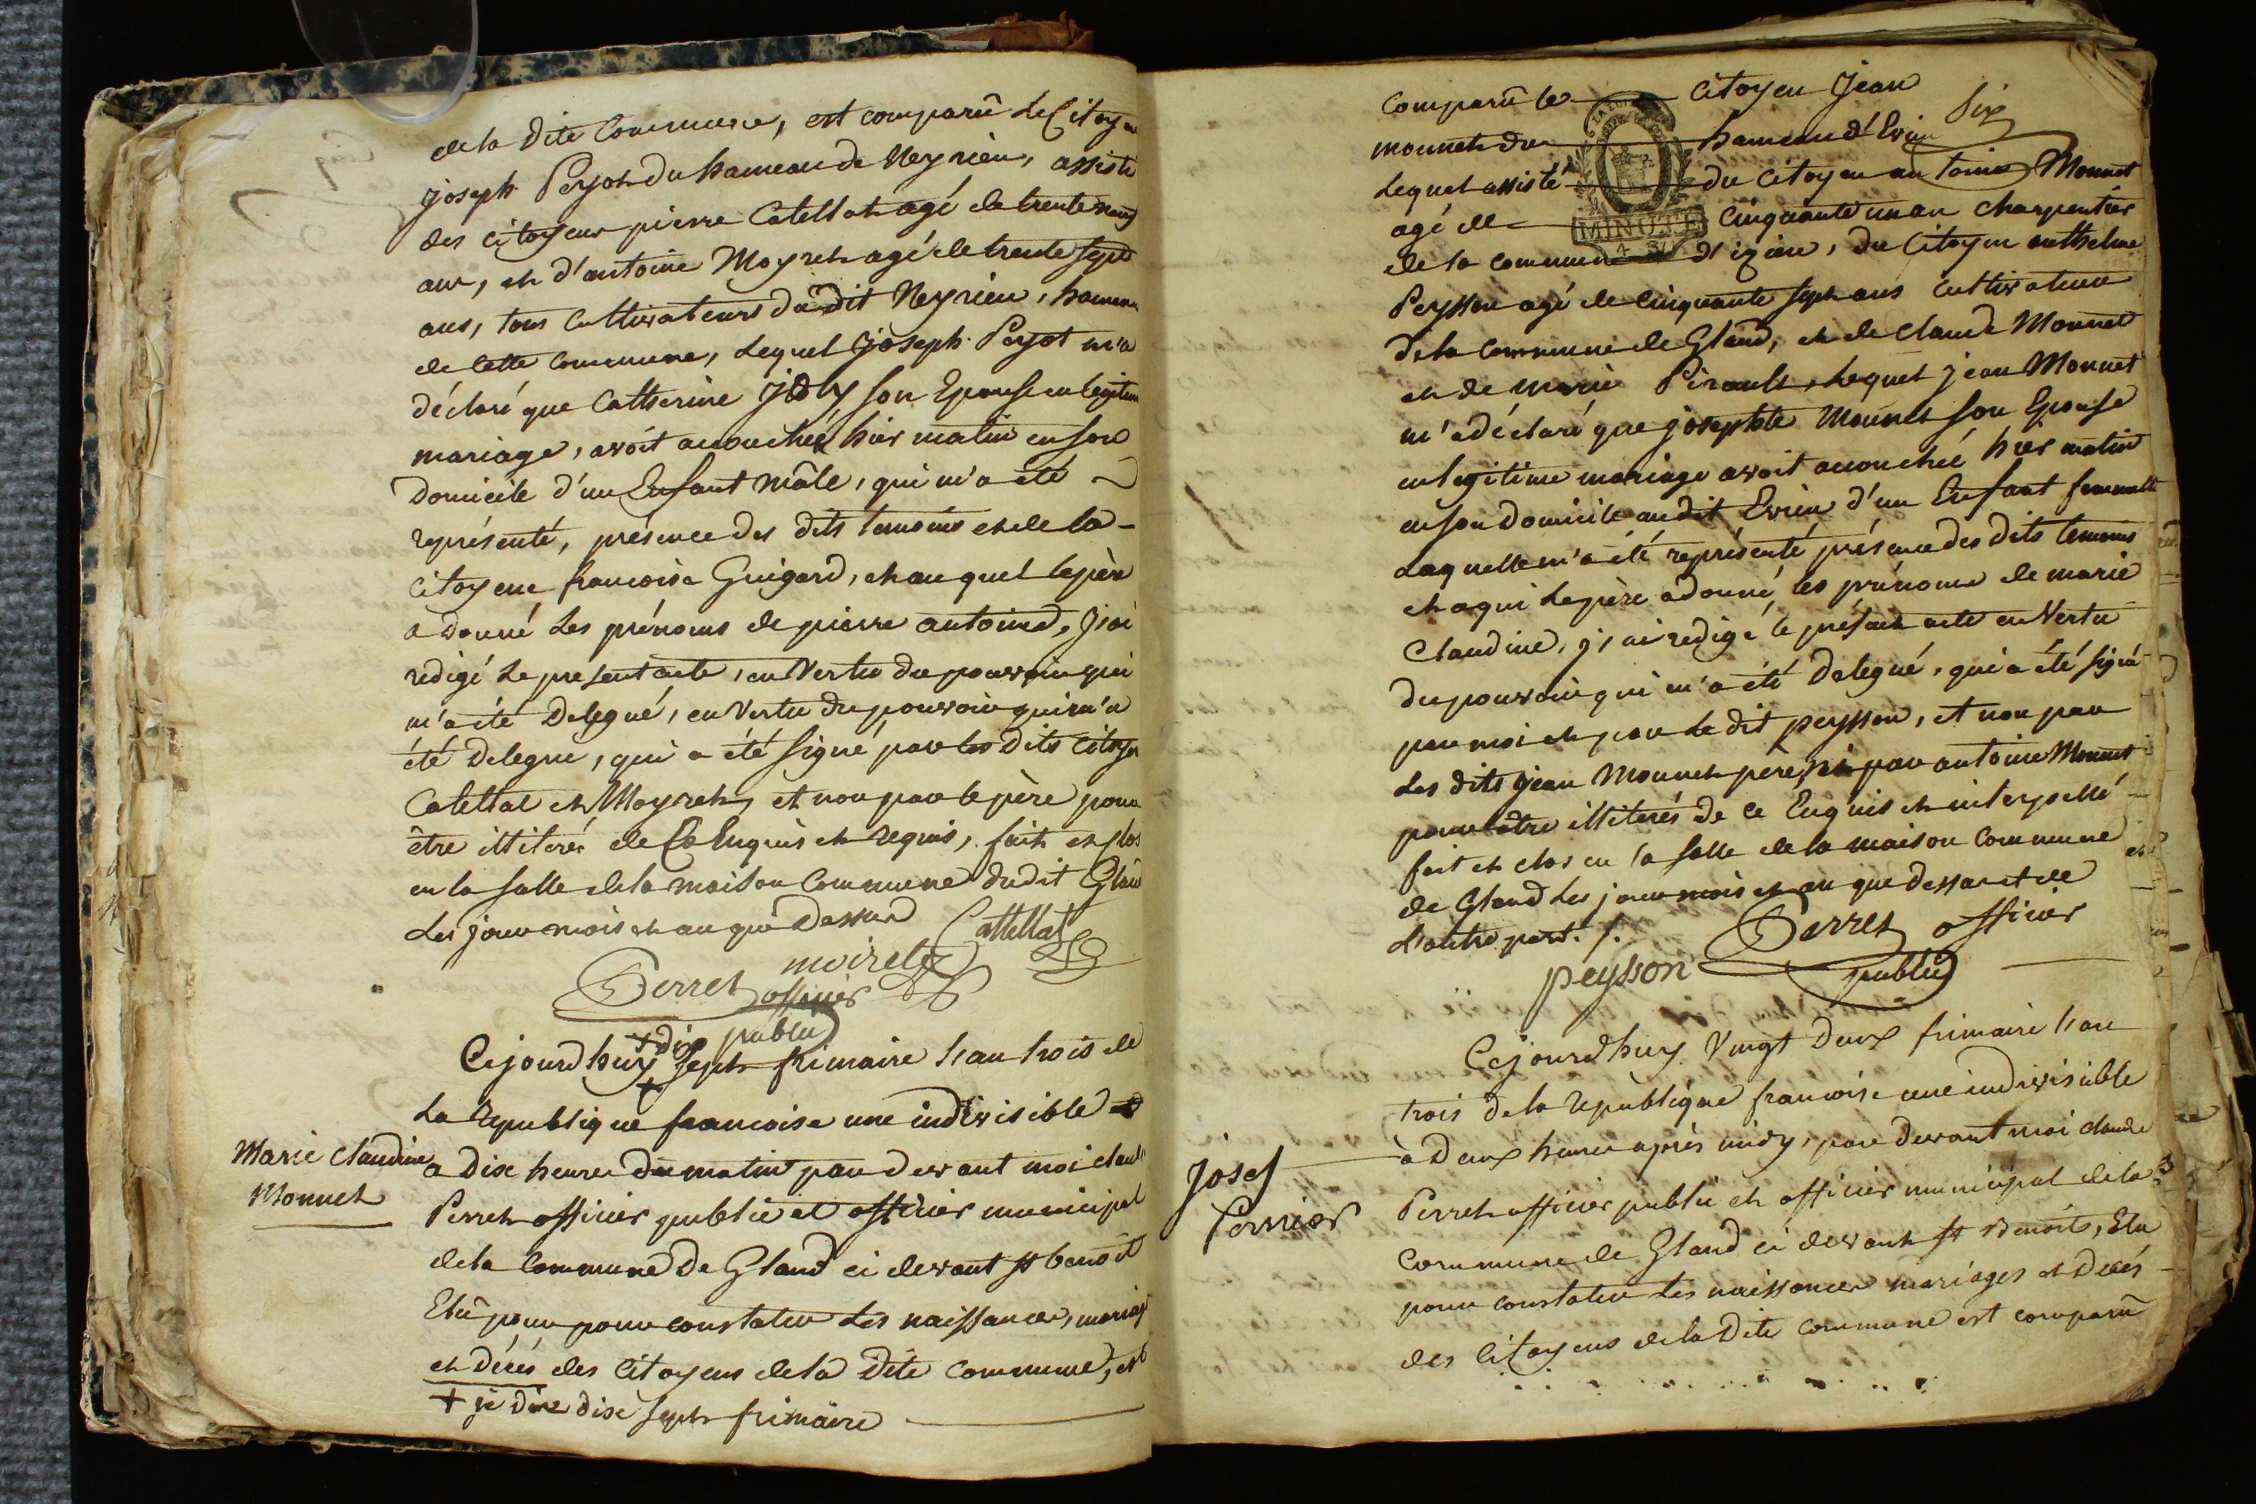 de la dite Commune, est comparû Le Citoyen
joseph Peyot du hameau de Neyrieu, assisté
des citoyens pierre Catellat agé de trente neuf
ans, et d'antoine Moyret agé de trente sept
ans, tous Cultivateurs du dit Neyrieu, hameau
de Cette Commune, Lequel joseph Peyot m'a
déclaré que Catherine joly son Epouse en legitime
mariage, avoit accouchée hier matin en son
Domicile d'un Enfant mâle, qui m'a été
représenté, présence des dits temoins et de la
Citoyene francoise Guigard, et au quel le père
a donné Les prénoms de pierre antoine, j'ai
redigé Le present acte, en Vertu du pouvoir qui
m'a été Delegué, en Vertu du pouvoir qui m'a
été Delegue, qui a été signé par les Dits Citoyen
Catellat et Moyret, et non par le père pour
être illiteré de Ce Enquis et requis, fait et clos
en la salle de la maison Commune dudit Gland
Les jour mois et an que Dessus
Cattellat
moiret
Perret officier
public
Cejourdhuy + dix sept frimaire l'an trois de
+
La republique francoise une indivisible
Marie Claudine
Monnet
a Dix heures du matin par devant moi claude
Perret officier public et officier municipal
de la Commune De Gland ci devant st benoit
Elû pour pour constater Les naissances, mariages
et décés des Citoyens de la Dite Commune, est
+ je dire dix sept frimaire
Six
Comparû le Citoyen Jean
monnet du hameau d'Evieu
Lequel assisté du Citoyen antoine Monnet
agé de cinquante un an Charpentier
MINUTE
de la commune d'izieu, du Citoyen anthelme
Peysson agé de Cinquante sept ans Cultivateur
de la Commune de Gland, et de Claude Monnet
et de marie Pirault, Lequel jean Monnet
m'a déclaré que josephte Monnet son Epouse
en legitime mariage avoit accouchée hier matin
en son Domicile audit Evieu d'un Enfant femmelle
Laquelle m'a été représenté présence des dits temoins
et a qui Le père a donné les prénoms de marie
Claudine, j'ai redigé le présent acte en Vertu
du pouvoir qui m'a été Delegué, qui a été signé
par moi et par Le dit peysson, et non par
Les dits jean Monnet père, ni par antoine Monnet
pour être illiterés de Ce Enquis et interpellé
fait et clos en la salle de la maison Commune
de Gland Les jour mois et an que dessus et de
L'autre part. /.
peysson
Perret officier
public
Cejourdhuy Vingt Deux frimaire l'an
trois de la republique francoise une indivisible
Josef
Perrier
à Deux heures après midy, par devant moi claude
Perret officier public et officier municipal de la
Commune de Gland ci devant st Benoit, Elu
pour constater Les naissances mariages et Décés
des Citoyens de la Dite Commune est comparû